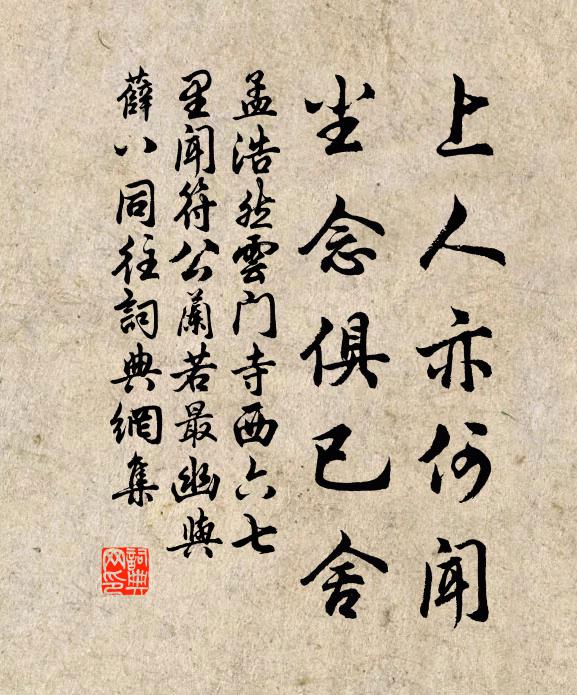 上人亦何闻
尘念俱已舍
孟浩然雲门寺西六七
里闻符公蘭若最幽與
薛八同往詞典網集
詞典网印